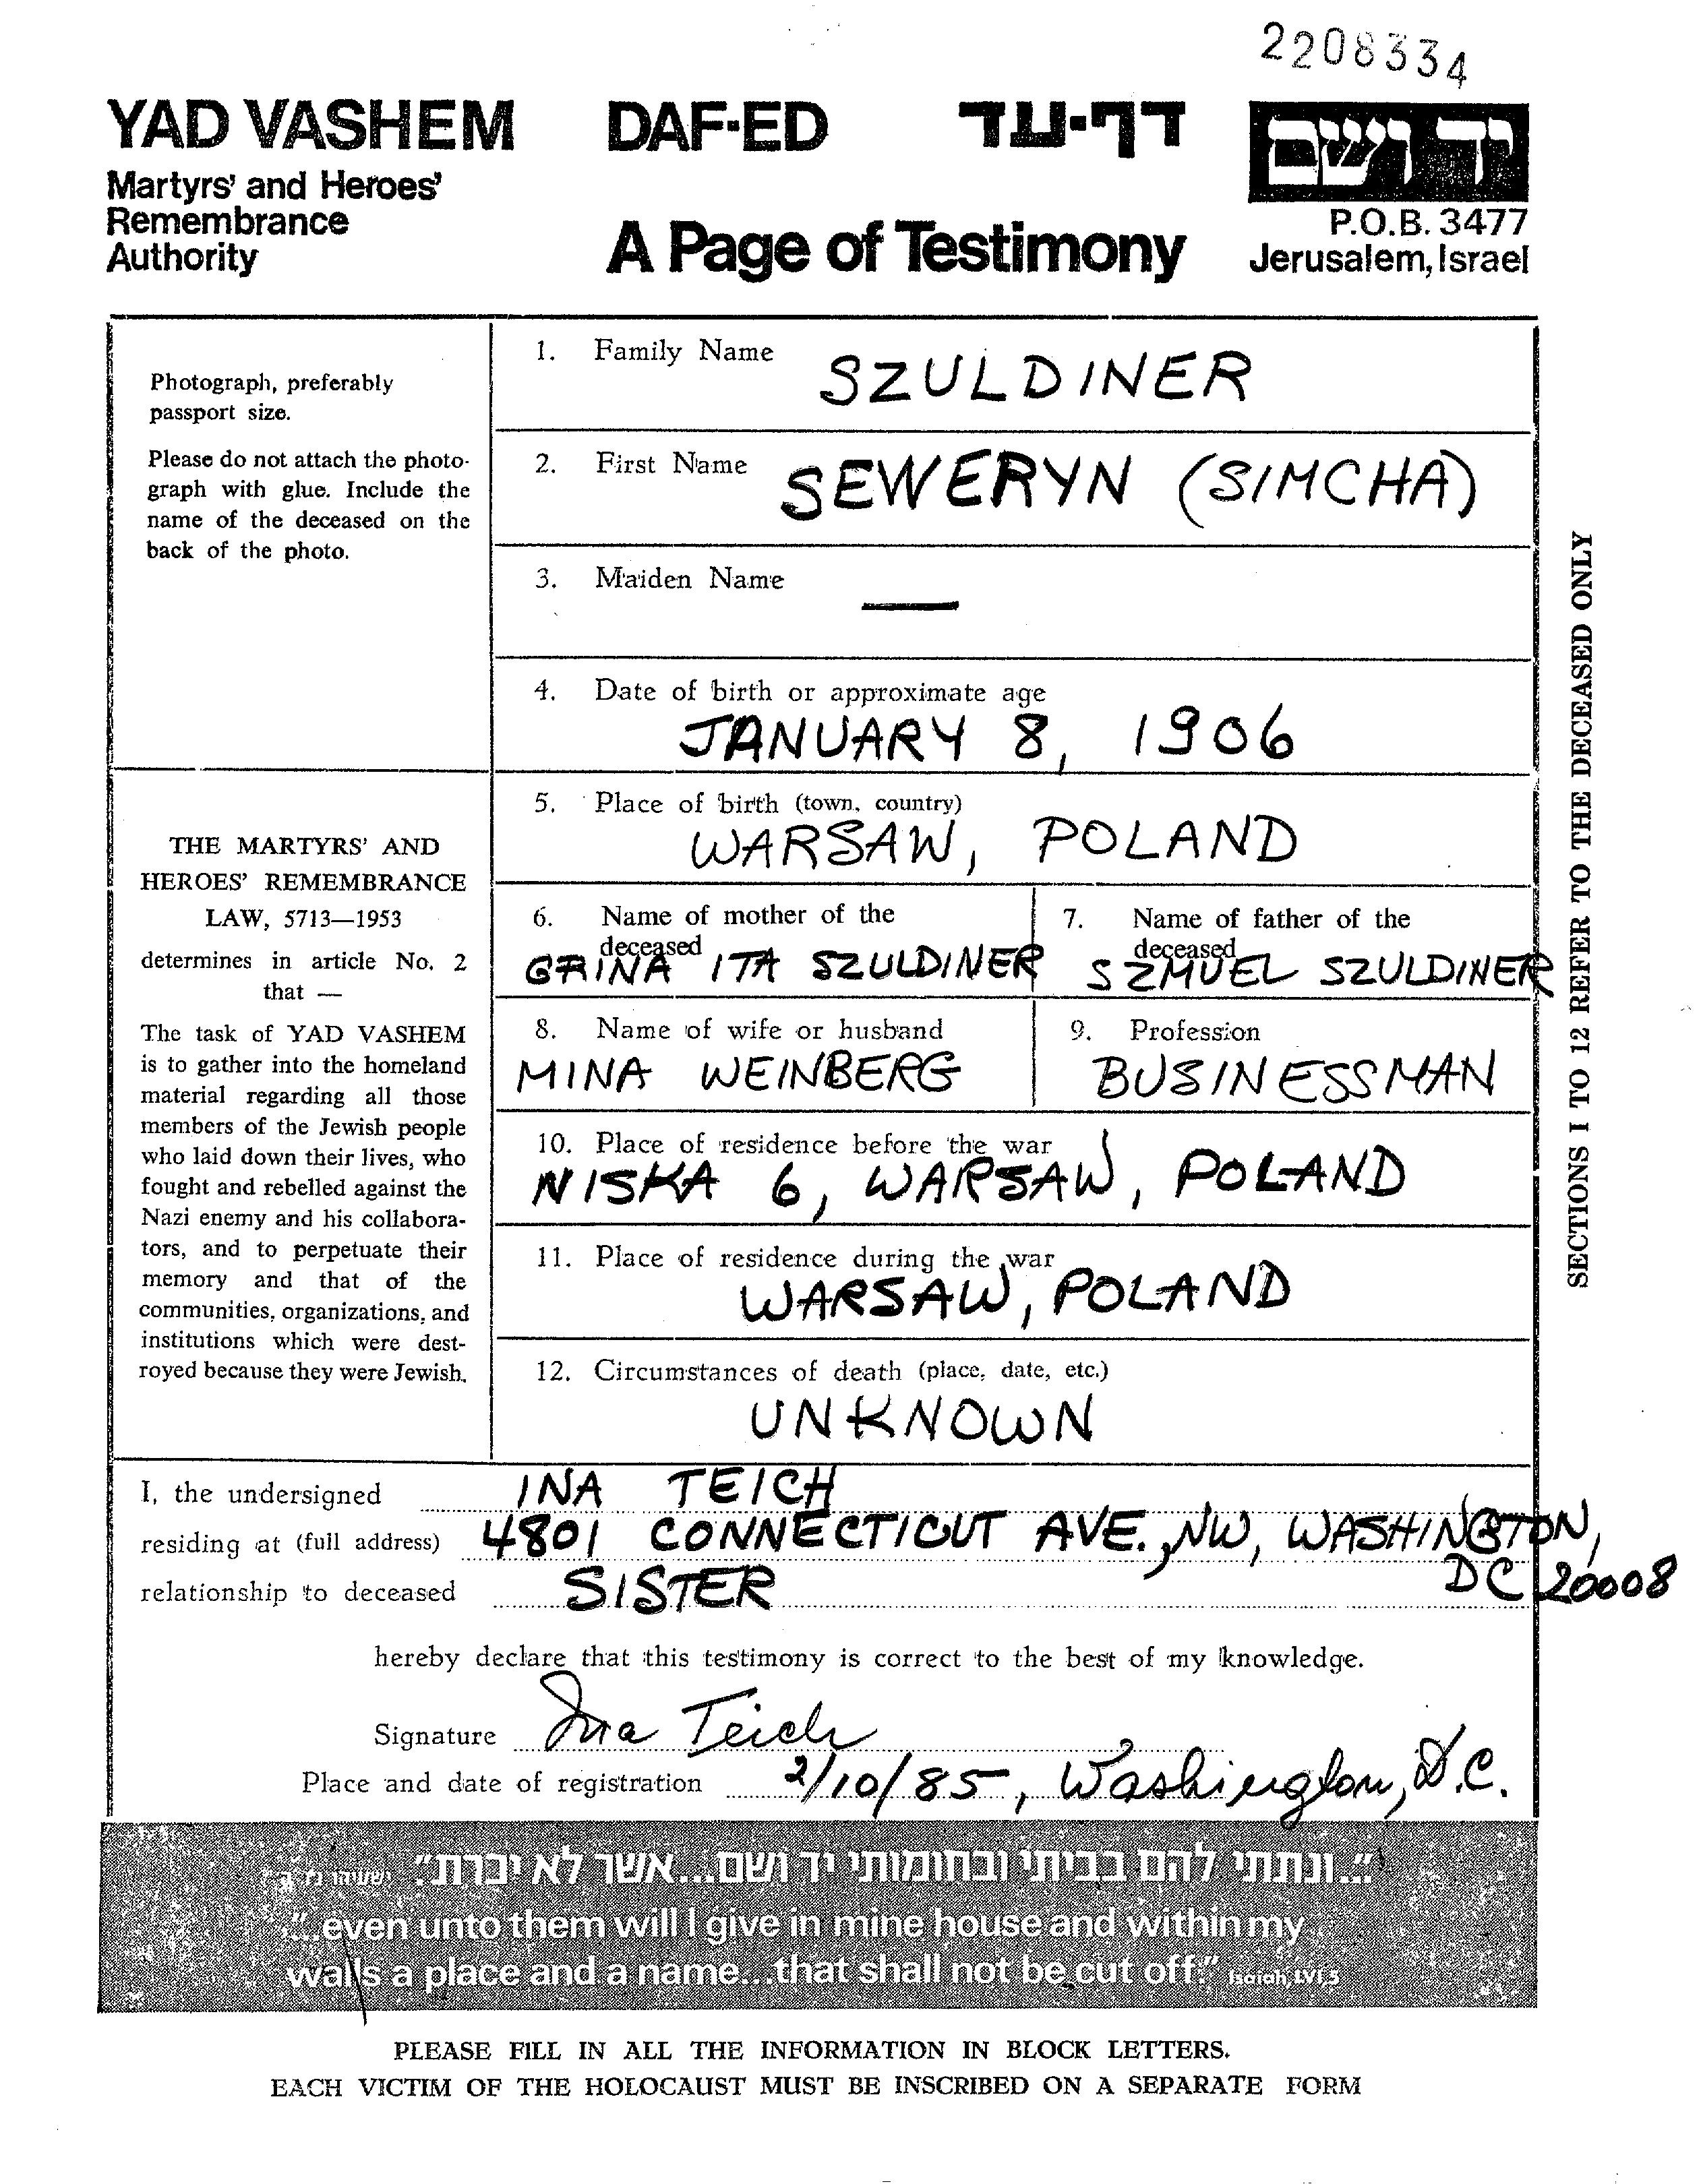 2208334
YAD VASHEM DAF-ED דף-עד
ידושם
Martyrs' and Heroes'
Remembrance
Authority
A Page of Testimony
P.O.B. 3477
Jerusalem, Israel
Photograph, preferably
passport size.
Please do not attach the photo-
graph with glue. Include the
name of the deceased on the
back of the photo.
THE MARTYRS' AND
HEROES' REMEMBRANCE
LAW, 5713—1953
determines in article No. 2
that —
The task of YAD VASHEM
is to gather into the homeland
material regarding all those
members of the Jewish people
who laid down their lives, who
fought and rebelled against the
Nazi enemy and his collabora-
tors, and to perpetuate their
memory and that of the
communities, organizations, and
institutions which were dest-
royed because they were Jewish.
1. Family Name
SZULDINER
2. First Name
SEWERYN (SIMCHA)
3. Maiden Name
—
4. Date of birth or approximate age
JANUARY 8, 1906
5. Place of birth (town, country)
WARSAW, POLAND
6. Name of mother of the
deceased
GRINA ITA SZULDINER
7. Name of father of the
deceased
SZMUEL SZULDINER
8. Name of wife or husband
MINA WEINBERG
9. Profession
BUSINESSMAN
10. Place of residence before the war
NISKA 6, WARSAW, POLAND
11. Place of residence during the war
WARSAW, POLAND
12. Circumstances of death (place, date, etc.)
UNKNOWN
SECTIONS 1 TO 12 REFER TO THE DECEASED ONLY
I, the undersigned INA TEICH
residing at (full address) 4801 CONNECTICUT AVE., NW, WASHINGTON,
DC 20008
relationship to deceased SISTER
hereby declare that this testimony is correct to the best of my knowledge.
Signature Ina Teich
Place and date of registration 2/10/85, Washington, D.C.
"...ונתתי להם בביתי ובחומותי יד ושם...אשר לא יכרת." ישעיהו נ"ו ה'
"...even unto them will I give in mine house and within my
walls a place and a name...that shall not be cut off:" Isaiah, LVI,5
PLEASE FILL IN ALL THE INFORMATION IN BLOCK LETTERS.
EACH VICTIM OF THE HOLOCAUST MUST BE INSCRIBED ON A SEPARATE FORM